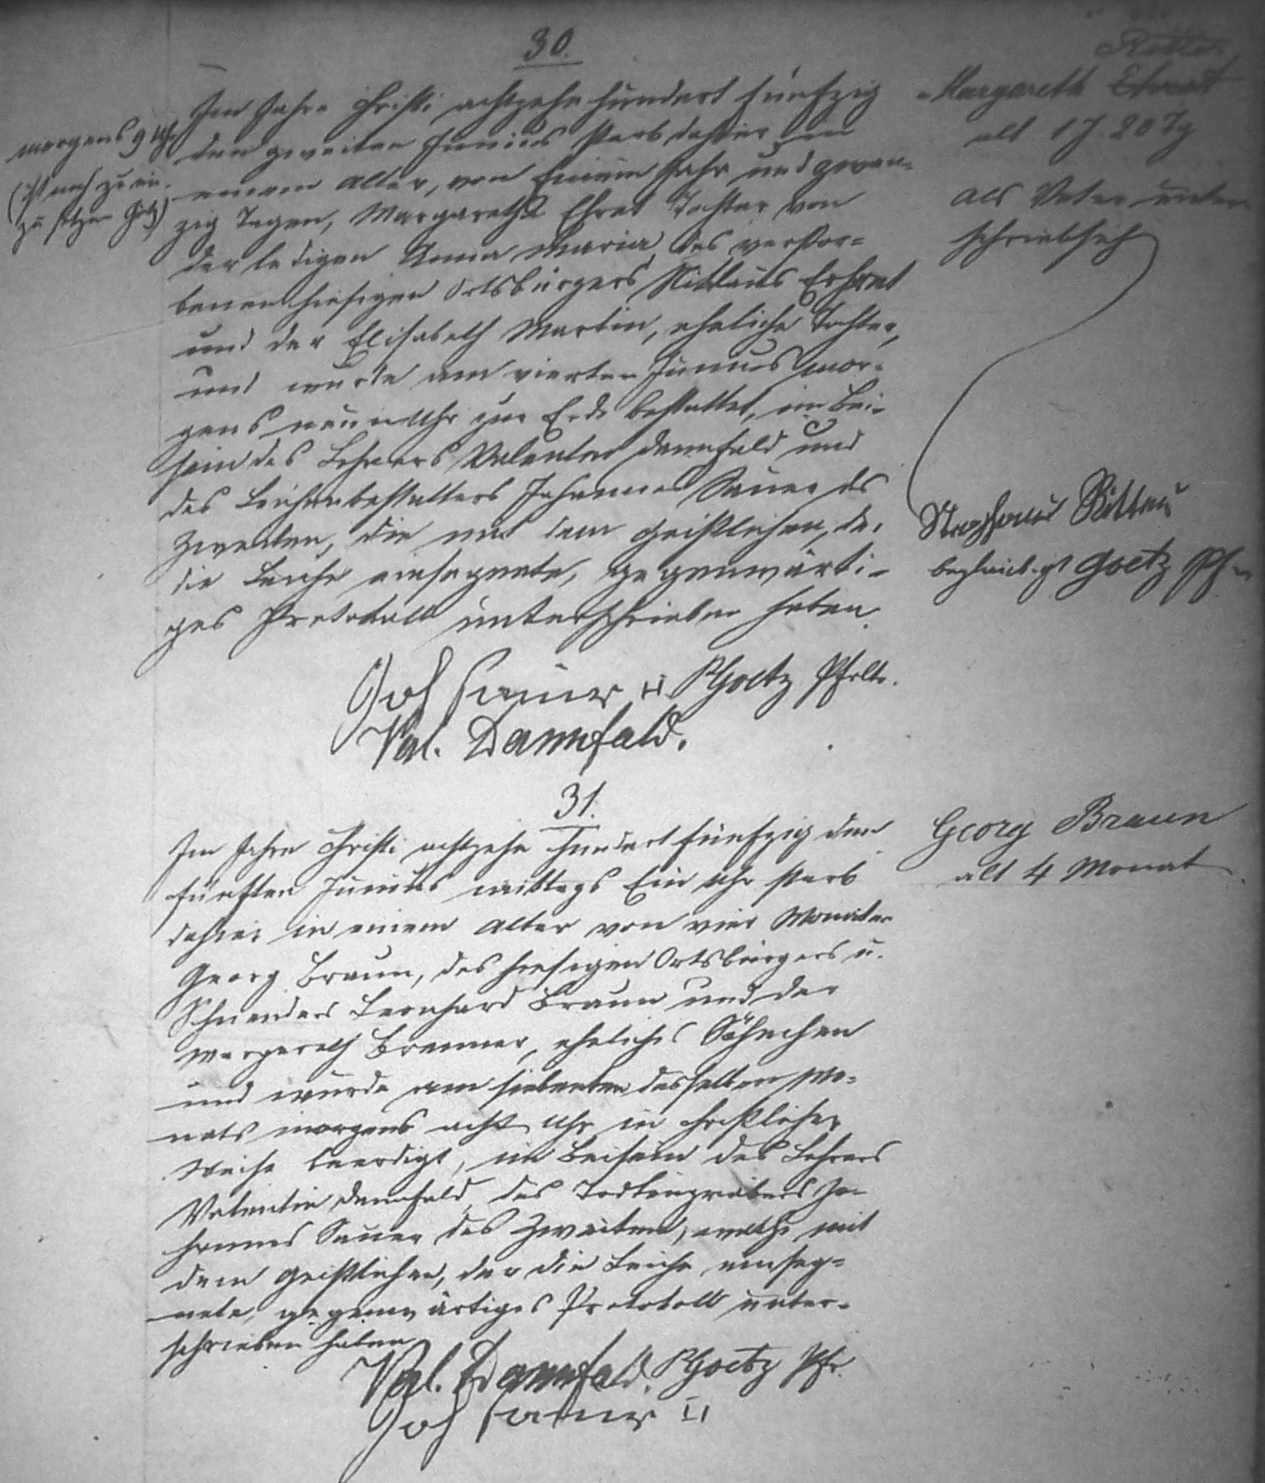 30.
Im Jahre Christi achtzehn hundert fünfzig
den zweiten Junius starb dahier in
einem Alter, von Einem Jahr und zwan-
zig Tagen, Margaretha Ehret Tochter von
der ledigen Anna Maria, des verstor=
benen hiesigen Ortsbürgers Niklaus Ehret
und der Elisabeth Martin, eheliche Tochter,
und wurde am vierten Junius mor-
gens neun Uhr zur Erde bestattet, im Bei-
sein des Lehrers Valentin Dannfald und
des Leichenbestatters Johannes Sauer des
Zweiten, die mit dem Geistlichen, der
die Leiche einsegnete, gegenwärti-
ges Protokoll unterschrieben haben.
Joh Sauer II Goetz Pfr
Val. Dannfald.
morgens 9 Uhr
(ist noch
zu setzen Götz)
Margareth Ehret
alt 1 J. 20 Tg
als Vater unter
schriebsich
Ritter
Goetz Pf
31.
Im Jahre Christi achtzehn hundert fünfzig den
fünften Junius mittags Ein Uhr starb
dahier in einem Alter von vier Monaten
Georg Braun, des hiesigen Ortsbürgers u.
Schneiders Leonhard Braun und der
Margareth Brenner, eheliches Söhnchen
und wurde am siebenten desselben Mo=
nats morgens acht Uhr in christlicher
Weise beerdigt, im Beisein des Lehrers
Valentin Dannfald, des Todtengräbers Jo-
hannes Sauer des Zweiten, welche mit
dem Geistlichen, der die Leiche einseg=
nete, gegenwärtiges Protokoll unter-
schrieben haben
Val. Dannfald. Goetz Pfr.
Joh Sauer II
Georg Braun
alt 4 Monat